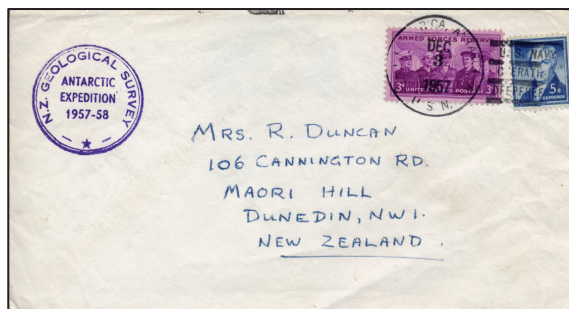 N.Z. GEOLOGICAL SURVEY
ANTARCTIC
EXPEDITION
1957-58
ARMED FORCES RESERVE
3¢ UNITED STATES POSTAGE 3¢
DEC
3
1957
U.S.N.
U.S. NAVY
5¢
MRS. R. DUNCAN
106 CANNINGTON RD.
MAORI HILL
DUNEDIN, NW1.
NEW ZEALAND.